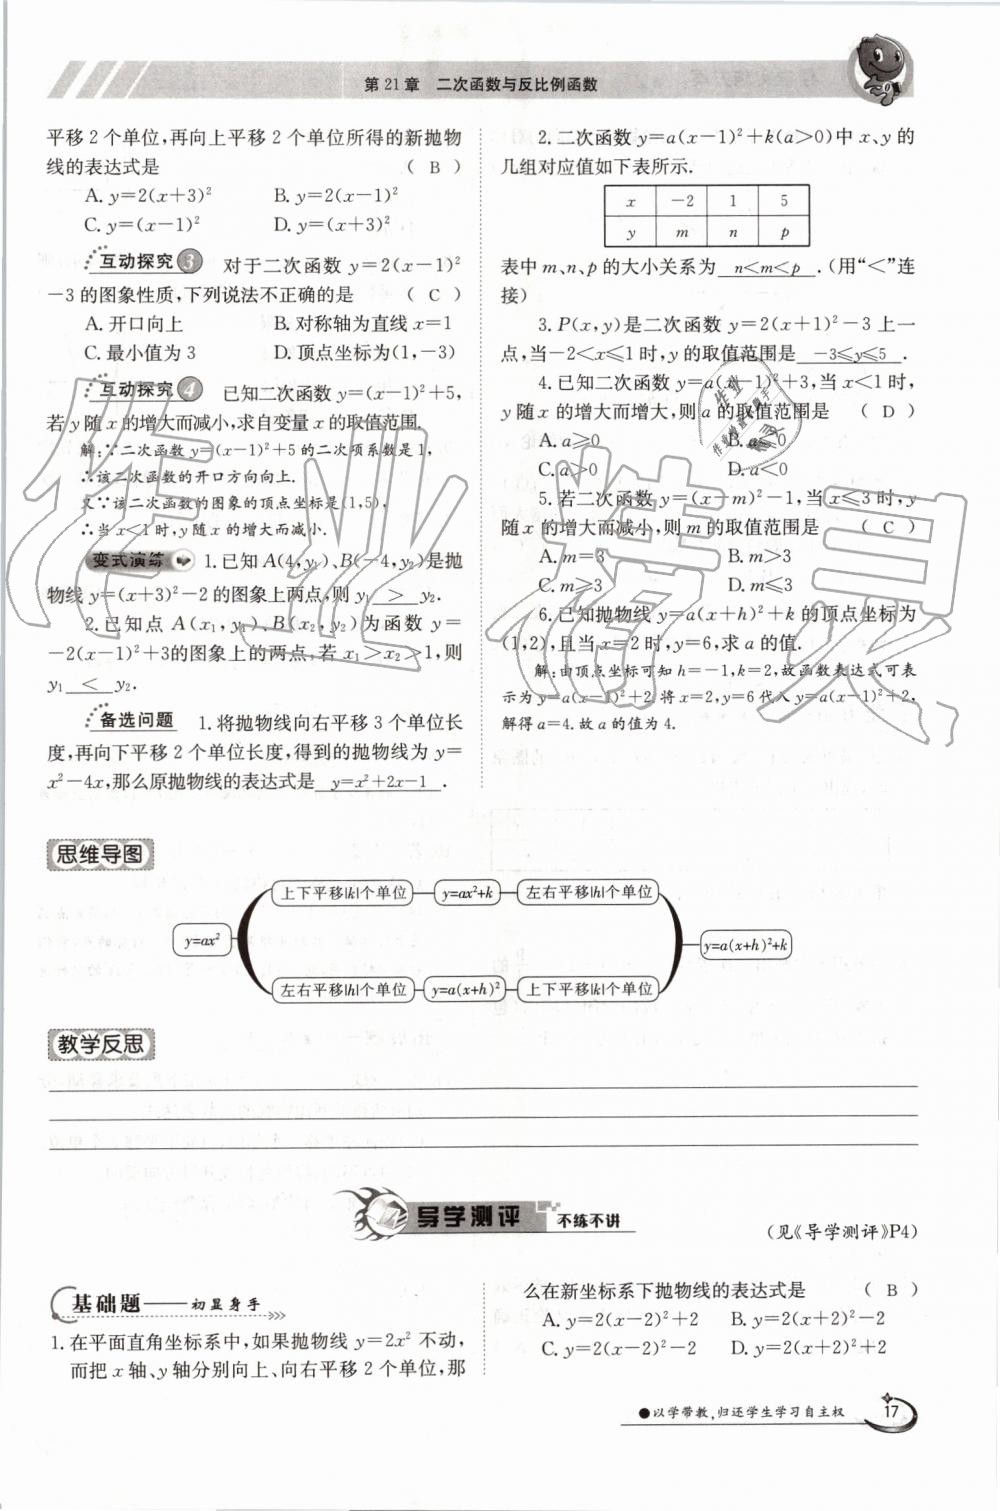 第21章 二次函数与反比例函数
平移2个单位,再向上平移2个单位所得的新抛物
线的表达式是 ( B )
A. y=2(x+3)² B. y=2(x-1)²
C. y=(x-1)² D. y=(x+3)²
互动探究3 对于二次函数 y=2(x-1)²
-3的图象性质,下列说法不正确的是 ( C )
A. 开口向上 B. 对称轴为直线 x=1
C. 最小值为3 D. 顶点坐标为(1,-3)
互动探究4 已知二次函数 y=(x-1)²+5,
若 y 随 x 的增大而减小,求自变量 x 的取值范围.
解:∵二次函数 y=(x-1)²+5的二次项系数是1,
∴该二次函数的开口方向向上.
又∵该二次函数的图象的顶点坐标是(1,5),
∴当 x<1时,y随x的增大而减小.
变式演练 1.已知 A(4,y₁)、B(-4,y₂)是抛
物线 y=(x+3)²-2的图象上两点,则 y₁ > y₂.
2.已知点 A(x₁,y₁)、B(x₂,y₂)为函数 y=
-2(x-1)²+3的图象上的两点,若 x₁>x₂>1,则
y₁ < y₂.
备选问题 1.将抛物线向右平移3个单位长
度,再向下平移2个单位长度,得到的抛物线为 y=
x²-4x,那么原抛物线的表达式是 y=x²+2x-1 .
2.二次函数 y=a(x-1)²+k(a>0)中 x、y 的
几组对应值如下表所示.
x -2 1 5
y m n p
表中 m、n、p 的大小关系为 n<m<p .(用“<”连
接)
3.P(x,y)是二次函数 y=2(x+1)²-3上一
点,当-2<x≤1时,y的取值范围是 -3≤y≤5 .
4.已知二次函数 y=a(x-1)²+3,当 x<1时,
y随x的增大而增大,则 a 的取值范围是 ( D )
A. a≥0 B. a≤0
C. a>0 D. a<0
5.若二次函数 y=(x-m)²-1,当 x≤3时,y
随 x 的增大而减小,则 m 的取值范围是 ( C )
A. m=3 B. m>3
C. m≥3 D. m≤3
6.已知抛物线 y=a(x+h)²+k的顶点坐标为
(1,2),且当 x=2时,y=6,求 a 的值.
解:由顶点坐标可知 h=-1,k=2,故函数表达式可表
示为 y=a(x-1)²+2.将 x=2,y=6代入 y=a(x-1)²+2,
解得 a=4.故 a 的值为4.
思维导图
上下平移|k|个单位 y=ax²+k 左右平移|h|个单位
y=ax² y=a(x+h)²+k
左右平移|h|个单位 y=a(x+h)² 上下平移|k|个单位
教学反思
导学测评 不练不讲
(见《导学测评》P4)
基础题——初显身手
1.在平面直角坐标系中,如果抛物线 y=2x² 不动,
而把 x 轴、y 轴分别向上、向右平移2个单位,那
么在新坐标系下抛物线的表达式是 ( B )
A. y=2(x-2)²+2 B. y=2(x+2)²-2
C. y=2(x-2)²-2 D. y=2(x+2)²+2
●以学带教,归还学生学习自主权
17
作业精灵